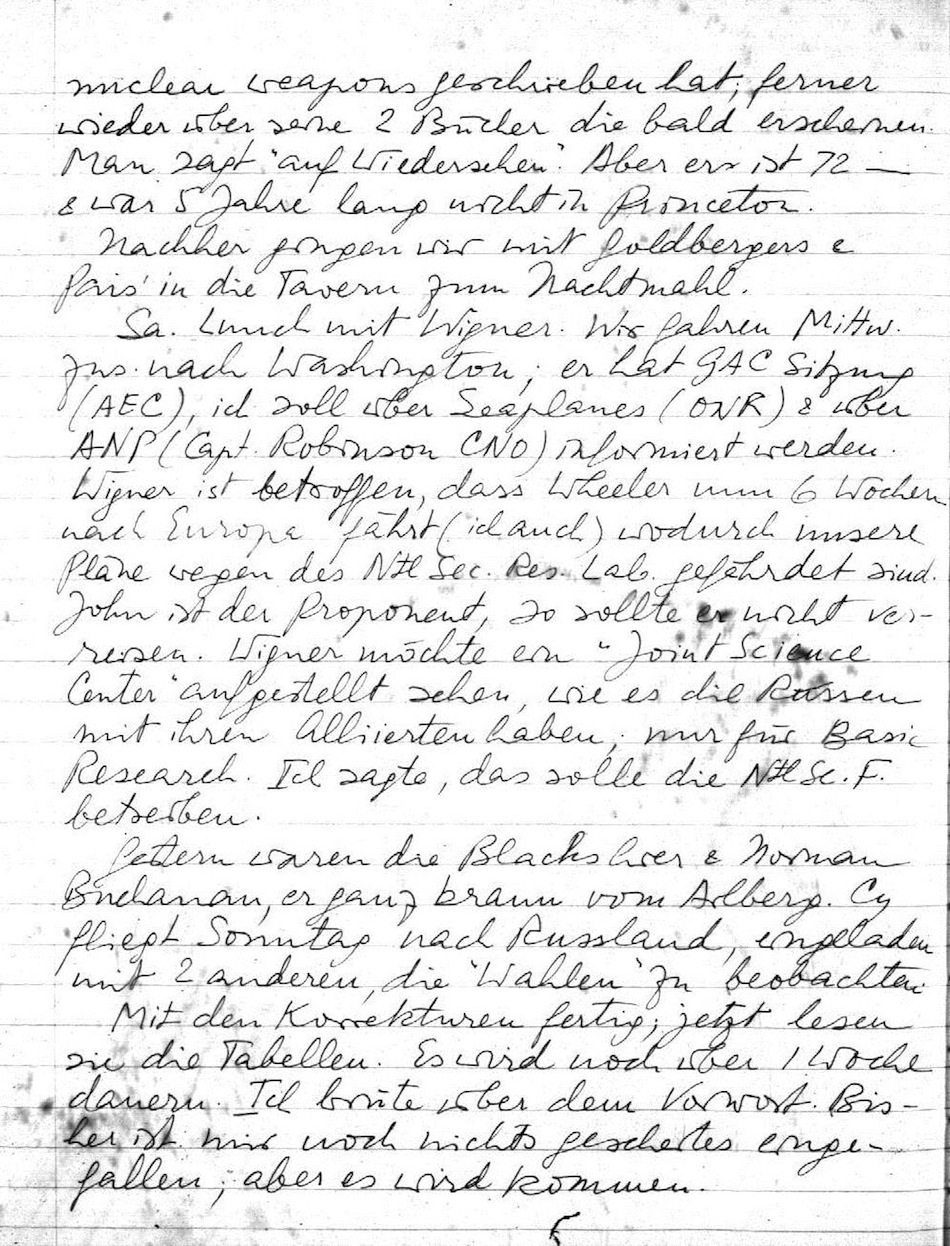 nuclear weapons geschrieben hat; ferner
wieder über seine 2 Bücher die bald erscheinen.
Man sagt "auf Wiedersehen". Aber er ist 72 —
& war 5 Jahre lang nicht in Princeton.
Nachher gingen wir mit Goldbergers &
Pais' in die Tavern zum Nachtmahl.
Sa. Lunch mit Wigner. Wir fahren Mittw.
zus. nach Washington; er hat GAC Sitzung
(AEC), ich soll über Seaplanes (ONR) & über
ANP (Capt. Robinson CNO) informiert werden.
Wigner ist betroffen, dass Wheeler nun 6 Wochen
nach Europa fährt (ich auch) wodurch unsere
Pläne wegen des Ntl Sec. Res. Lab. gefährdet sind.
John ist der Proponent, so sollte er nicht ver-
reisen. Wigner möchte ein "Joint Science
Center" aufgestellt sehen, wie es die Russen
mit ihren Alliierten haben; nur für Basic
Research. Ich sagte, das solle die Ntl Sc. F.
betreiben.
Gestern waren die Blacks hier & Norman
Buchanan, er ganz braun vom Arlberg. Cy
fliegt Sonntag nach Russland, eingeladen
mit 2 anderen, die "Wahlen" zu beobachten.
Mit den Korrekturen fertig; jetzt lesen
sie die Tabellen. Es wird noch über 1 Woche
dauern. Ich brüte über dem Vorwort. Bis-
her ist mir noch nichts gescheites einge-
fallen; aber es wird kommen.